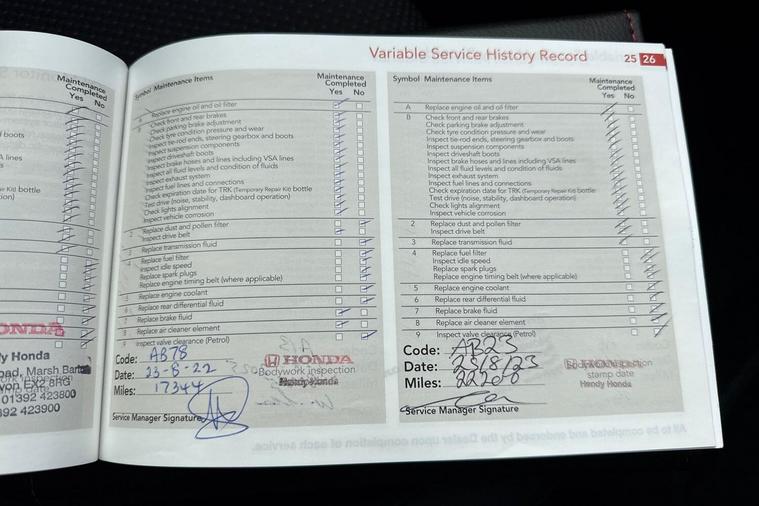 Variable Service History Record 25 26
Maintenance
Completed
Yes No
boots
A lines
bottle
HONDA
Honda
Road, Marsh Barton
EX2 8HG
01392 423800
01392 423900
Symbol Maintenance Items
Maintenance
Completed
Yes No
Replace engine oil and oil filter
Check front and rear brakes
Check parking brake adjustment
Check tyre condition pressure and wear
Inspect tie-rod ends, steering gearbox and boots
Inspect suspension components
Inspect driveshaft boots
Inspect brake hoses and lines including VSA lines
Inspect all fluid levels and condition of fluids
Inspect exhaust system
Inspect fuel lines and connections
Check expiration date for TRK (Temporary Repair Kit) bottle
Test drive (noise, stability, dashboard operation)
Check lights alignment
Inspect vehicle corrosion
Replace dust and pollen filter
Inspect drive belt
Replace transmission fluid
Replace fuel filter
Inspect idle speed
Replace spark plugs
Replace engine timing belt (where applicable)
Replace engine coolant
Replace rear differential fluid
Replace brake fluid
Replace air cleaner element
9 Inspect valve clearance (Petrol)
Code: AB78
Date: 23-8-22
Miles: 17344
HONDA
Bodywork inspection
Hendy Honda
Service Manager Signature
Symbol Maintenance Items
Maintenance
Completed
Yes No
A Replace engine oil and oil filter
B Check front and rear brakes
Check parking brake adjustment
Check tyre condition pressure and wear
Inspect tie-rod ends, steering gearbox and boots
Inspect suspension components
Inspect driveshaft boots
Inspect brake hoses and lines including VSA lines
Inspect all fluid levels and condition of fluids
Inspect exhaust system
Inspect fuel lines and connections
Check expiration date for TRK (Temporary Repair Kit) bottle
Test drive (noise, stability, dashboard operation)
Check lights alignment
Inspect vehicle corrosion
2 Replace dust and pollen filter
Inspect drive belt
3 Replace transmission fluid
4 Replace fuel filter
Inspect idle speed
Replace spark plugs
Replace engine timing belt (where applicable)
5 Replace engine coolant
6 Replace rear differential fluid
7 Replace brake fluid
8 Replace air cleaner element
9 Inspect valve clearance (Petrol)
Code: AB23
Date: 28/8/23
Miles:
HONDA
stamp date
Hendy Honda
Service Manager Signature